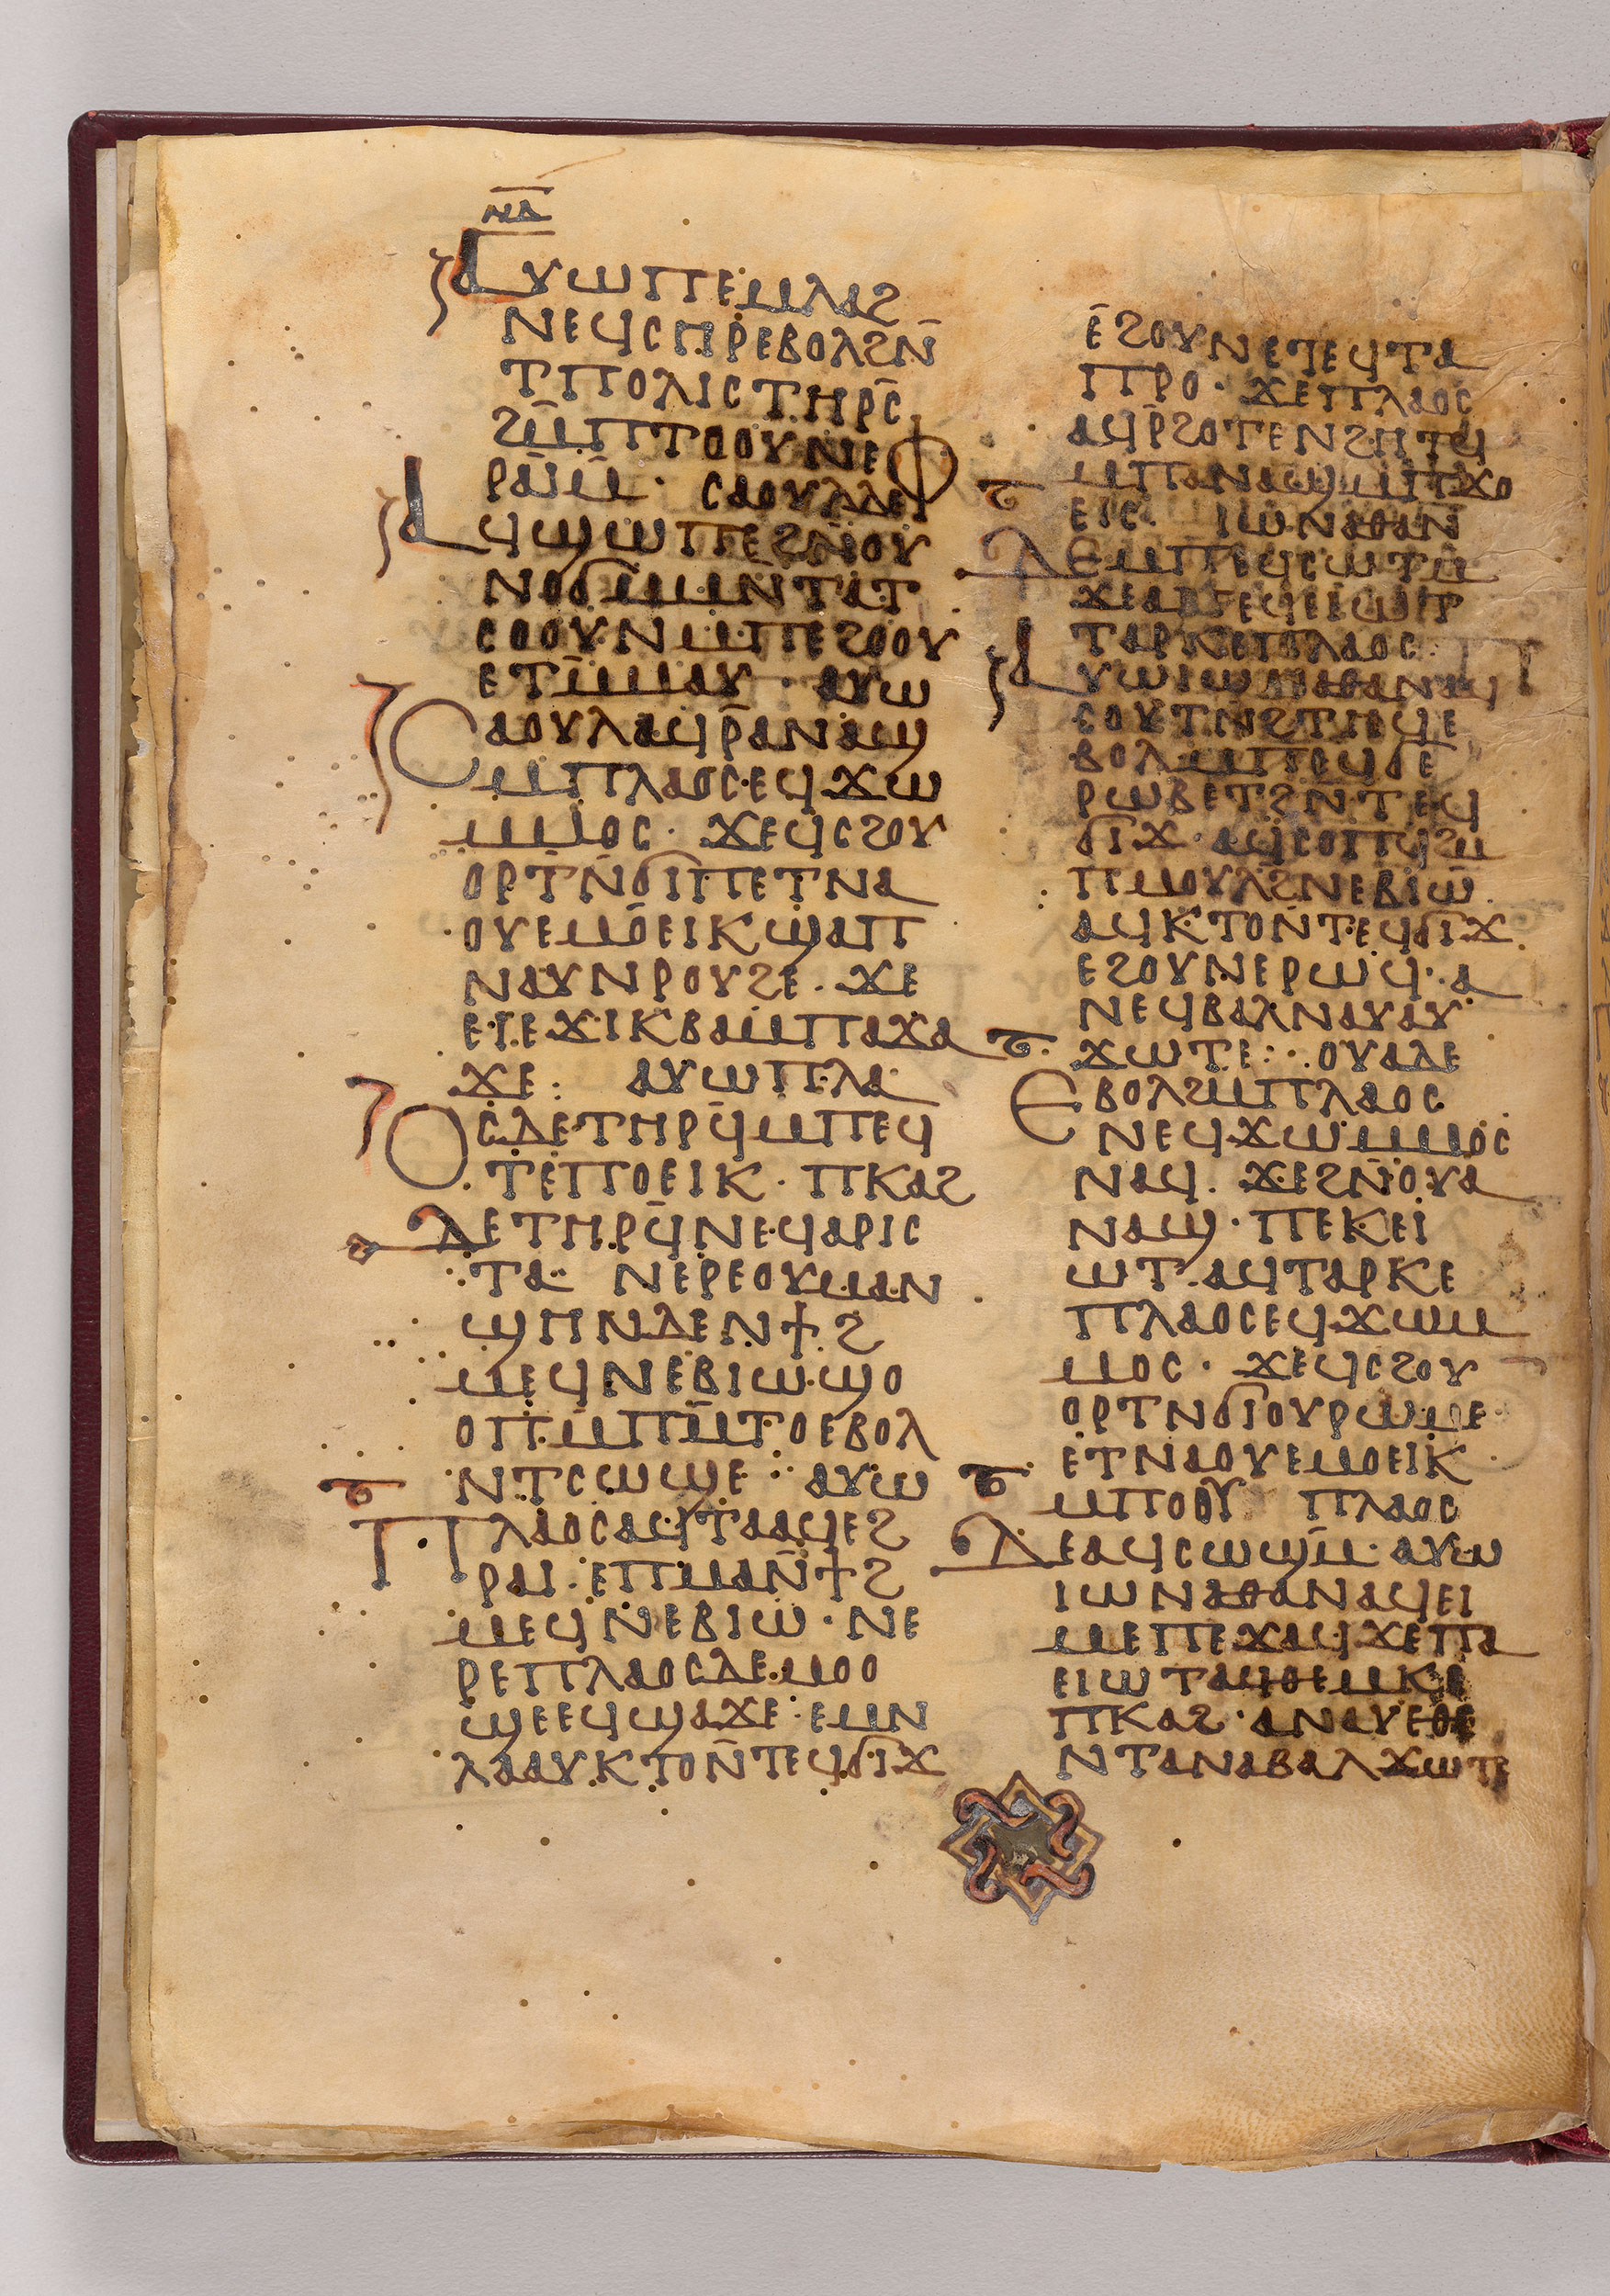 ⲛⲇ
ⲁⲩⲱⲡⲉⲙⲗⲁϩ
ⲛⲉϥⲥⲏⲣⲉⲃⲟⲗϩⲛ̄
ⲧⲡⲟⲗⲓⲥⲧⲏⲣⲥ̄
ϩⲙ̄ⲡⲧⲟⲟⲩⲛⲉⲫ
ⲣⲁⲓ̈ⲙ̄· ⲥⲁⲟⲩⲗⲇⲉ
ⲁϥϣⲱⲡⲉϩⲛ̄ⲟⲩ
ⲛⲟϭⲙ̄ⲙⲛ̄ⲧⲁⲧ
ⲥⲟⲟⲩⲛⲙ̄ⲡⲉϩⲟⲟⲩ
ⲉⲧⲙ̄ⲙⲁⲩ· ⲁⲩⲱ
ⲥⲁⲟⲩⲗⲁϥⲣ̄ⲁⲛⲁϣ
ⲙ̄ⲡⲗⲁⲟⲥ·ⲉϥϫⲱ
ⲙ̄ⲙⲟⲥ· ϫⲉϥⲥϩⲟⲩ
ⲟⲣⲧⲛ̄ϭⲓⲡⲉⲧⲛⲁ
ⲟⲩⲉⲙⲟⲉⲓⲕϣⲁⲡ
ⲛⲁⲩⲛⲣⲟⲩϩⲉ· ϫⲉ
ⲉⲓⲉϫⲓⲕⲃⲁⲙⲡⲁϫⲁ
ϫⲉ: ⲁⲩⲱⲡⲗⲁ
ⲟⲥⲇⲉⲧⲏⲣϥ̄ⲙⲡⲉϥ
ⲧⲉⲡⲟⲉⲓⲕ· ⲡⲕⲁϩ
ⲇⲉⲧⲏⲣϥ̄ⲛⲉϥⲁⲣⲓⲥ
ⲧⲁ ⲛⲉⲣⲉⲟⲩⲙⲁⲛ
ϣⲏⲛⲇⲉⲛϯϩ
ⲙⲉϥⲛⲉⲃⲓⲱϣⲟ
ⲟⲡⲙ̄ⲡⲙ̄ⲧⲟⲉⲃⲟⲗ
ⲛⲧⲥⲱϣⲉ: ⲁⲩⲱ
ⲡⲗⲁⲟⲥⲁϥϯⲧⲁⲁϥⲉϩ
ⲣⲁⲓ·ⲉⲡⲙⲁⲛ̄ϯϩ
ⲙⲉϥⲛⲉⲃⲓⲱ·ⲛⲉ
ⲣⲉⲡⲗⲁⲟⲥⲇⲉⲙⲟⲟ
ϣⲉⲉϥϣⲁϫⲉ·ⲉⲙⲛ
ⲗⲁⲁⲩⲕⲧⲟⲛ̄ⲧⲉϥϭⲓϫ
ⲉ̄ϩⲟⲩⲛⲉⲧⲉϥⲧⲁ
ⲡⲣⲟ· ϫⲉⲡⲗⲁⲟⲥ
ⲁϥⲣ̄ϩⲟⲧⲉⲛϩⲏⲧϥ
ⲙⲡⲁⲛⲁϣⲙ̄ⲡϫⲟ
ⲉⲓⲥ· ⲓⲱⲛⲁⲑⲁⲛ
ⲇⲉⲙⲡⲉϥⲥⲱⲧⲙ̄
ϫⲉⲁⲡⲉϥⲉⲓⲱⲧ
ⲧⲁⲣⲕⲉⲡⲗⲁⲟⲥ·
ⲁⲩⲱⲓⲱⲛⲁⲑⲁⲛⲁϥ
ⲥⲟⲩⲧⲛϩⲧⲏϥⲉ
ⲃⲟⲗⲙⲡⲉϥϭⲉ
ⲣⲱⲃⲉⲧϩⲛⲧⲉϥ
ϭⲓϫ·ⲁϥⲥⲟⲡϥϩⲙ
ⲡⲙⲟⲩⲗϩⲛⲉⲃⲓⲱ̄·
ⲁϥⲕⲧⲟⲛ̄ⲧⲉϥϭⲓϫ
ⲉϩⲟⲩⲛⲉⲣⲱϥ·ⲁ
ⲛⲉϥⲃⲁⲗⲛⲁⲩⲁⲩ
ϫⲱⲧⲉ: ⲟⲩⲁⲇⲉ
ⲉⲃⲟⲗϩⲙⲡⲗⲁⲟⲥ
ⲛⲉϥϫⲱⲙⲙⲟⲥ
ⲛⲁϥ· ϫⲉϩⲛ̄ⲟⲩⲁ
ⲛⲁϣ·ⲡⲉⲕⲉⲓ
ⲱⲧ·ⲁϥⲧⲁⲣⲕⲉ
ⲡⲗⲁⲟⲥⲉϥϫⲱⲙ
ⲙⲟⲥ· ϫⲉϥⲥϩⲟⲩ
ⲟⲣⲧⲛϭⲓⲟⲩⲣⲱⲙⲉ
ⲉⲧⲛⲁⲟⲩⲉⲙⲟⲉⲓⲕ
ⲙⲡⲟⲟⲩ ⲡⲗⲁⲟⲥ
ⲇⲉⲁϥⲥⲱϣⲙ̄·ⲁⲩⲱ
ⲓⲱⲛⲁⲑⲁⲛⲁϥⲉⲓ
ⲙⲉⲡⲉϫⲁϥϫⲉⲡⲁ
ⲉⲓⲱⲧⲁϥⲑⲉⲙⲕⲉ
ⲡⲕⲁϩ·ⲁⲛⲁⲩⲉⲑⲉ
ⲛⲧⲁⲛⲁⲃⲁⲗϫⲱⲧⲉ